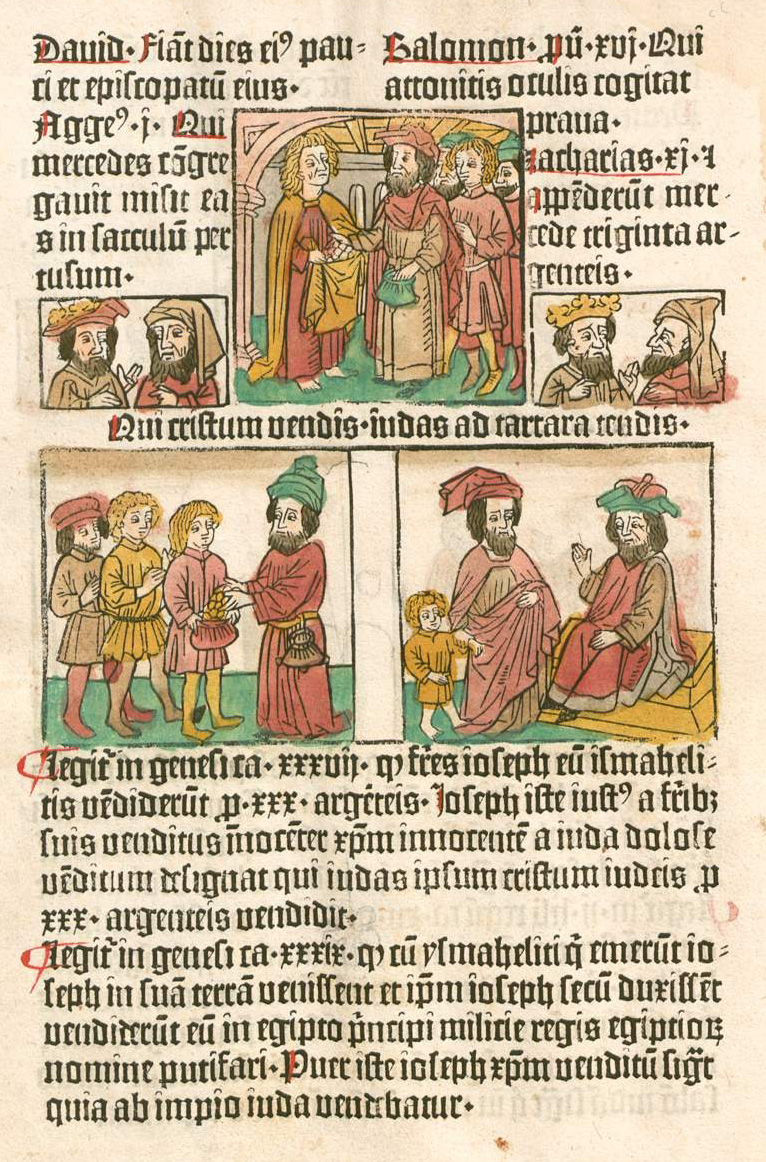 Dauid· Fiāt dies ei⁹ pau⸗
ci et episcopatū eius·
Agge⁹·j· Qui
mercedes cōgre
gauit misit ea
s in sacculū per
tusum·
Salomon· pū·xvj·Qui
attonitis oculis cogitat
praua·
zacharias·xj·⁊
appēderūt mer⸗
cede triginta ar⸗
genteis·
Qui cristum vendis·iudas ad tartara tendis·
Legit̄ in genesi ca· xxxvij· ꝙ fr̄es ioseph eū ismaheli⸗
tis vēdiderūt ꝓ·xxx· argēteis· Ioseph iste iust⁹ a fr̄ibꝫ
suis venditus īnocēter xp̄m innocentē a iuda dolose
vēditum designat qui iudas ipsum cristum iudeis ꝓ
xxx· argenteis vendidit·
Legit̄ in genesi ca·xxxix· ꝙ cū ysmaheliti q̄ emerūt io⸗
seph in suā terrā venissent et ip̄m ioseph secū duxissēt
vendiderūt eū in egipto p̄ncipi milicie regis egiptioꝝ
nomine putifari· Puer iste ioseph xp̄m venditū sigt̄
quia ab impio iuda vendebatur·